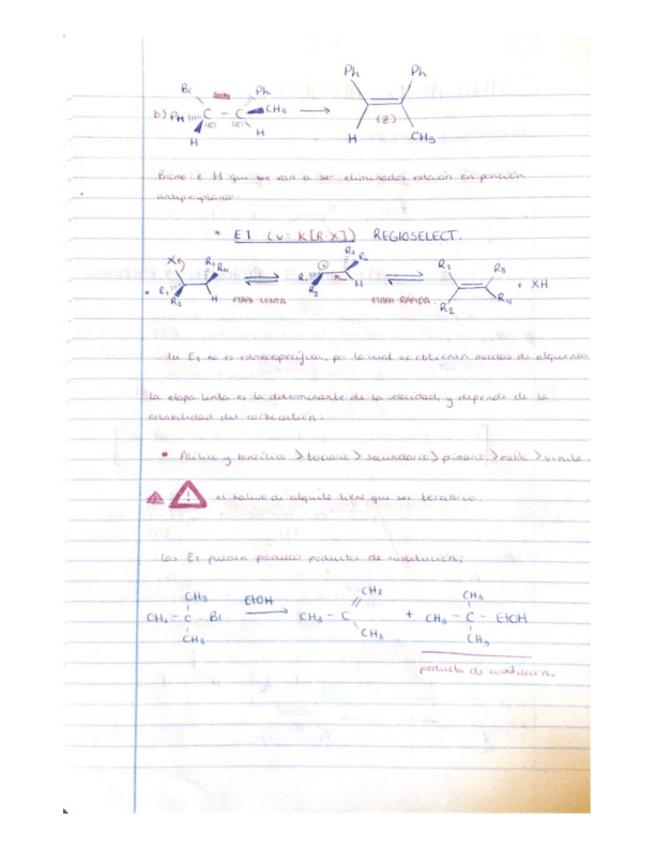 Br Ph
b) PH C - C CH₃ →
H H
Ph Ph
(Z)
H CH₃
Bromo e H que se van a ser eliminados estarán en posición
antiperiplanar.
* E1 (v = K[R-X]) REGIOSELECT.
X R₃ R₄ R₁ R₂ H
ETAPA LENTA
R₃ R₄ R₁ R₂ H
ETAPA RÁPIDA
R₁ R₃ R₂ R₄ + XH
la E1 no es estereoespecífica, por lo cual se obtienen mezclas de alquenos
la etapa lenta es la determinante de la velocidad, y depende de la
estabilidad del carbocatión:
• Alílico y bencílico > terciario > secundario > primario > metilo > vinilo
! el haluro de alquilo tiene que ser terciario.
Las E1 pueden producir productos de sustitución:
CH₃ EtOH CH₂ CH₃
CH₃ - C - Br → CH₃ - C + CH₃ - C - EtOH
CH₃ CH₃ CH₃
producto de sustitución.